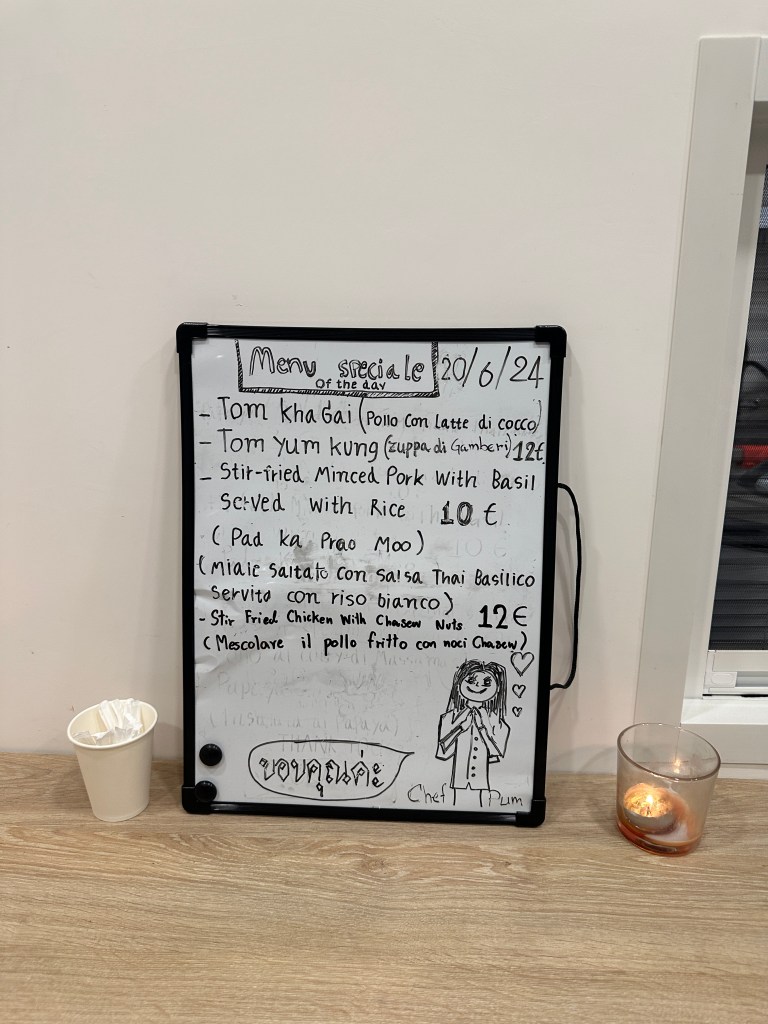 Menu speciale
Of the day
20/6/24
- Tom kha Gai (Pollo con Latte di cocco)
- Tom Yum kung (zuppa di Gamberi) 12€
- Stir-fried Minced Pork With Basil
Served With Rice 10 €
( Pad ka Prao Moo )
( Miaie saltato con salsa Thai Basilico
servito con riso bianco )
- Stir Fried Chicken With Chasew Nuts 12€
( Mescolare il pollo fritto con noci Chasew )
THANK
ขอบคุณค่ะ
Chef Pum